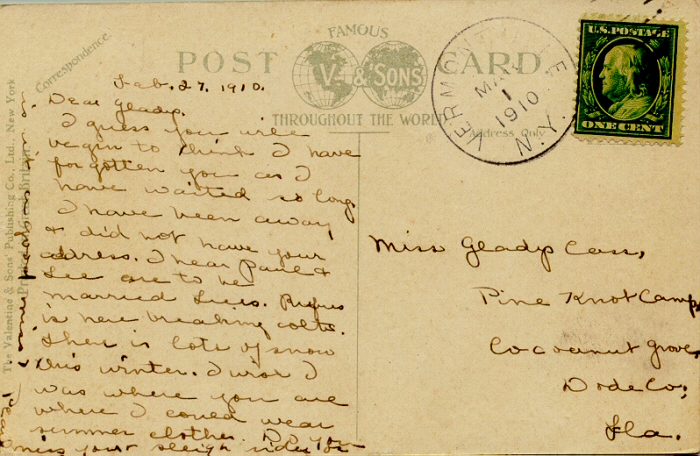 FAMOUS
POST CARD
V & SONS
THROUGHOUT THE WORLD
Correspondence.
Address Only
The Valentine & Sons' Publishing Co., Ltd., New York
Printed in Great Britain
VERMONTVILLE
MAR
1
1910
N.Y.
U.S. POSTAGE
ONE CENT
Feb. 27, 1910.
Dear Gladys.
I guess you will
begin to think I have
forgotten you as I
have waited so long
I have been away,
& did not have your
address. I hear Paul &
Lee are to be
married
is here breaking colts.
There is lots of snow
this winter. I wish I
was where you are
where I could wear
summer clothes. Do you
miss your sleigh rides
Miss Gladys Cass,
Pine Knot Camp,
Cocoanut Grove,
Dade Co;
Fla.